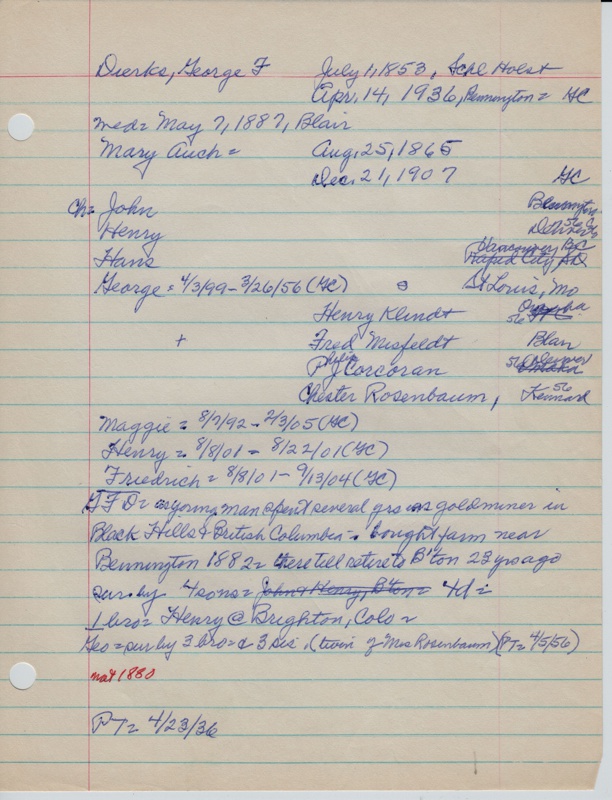 Dierks, George F July 1, 1853, Schl Holst
Apr. 14, 1936, Bennington = GC
med = May 7, 1887, Blair
Mary Auch = Aug. 25, 1865
Dec. 21, 1907 GC
ch = John Bennington
Henry 56
Hans Vancouver BC
Rapid City
George = 4/3/99 - 3/26/56 (GC) St Louis, Mo
Henry Klindt 56 Omaha
+ Fred Misfeldt Blair
Philip J Corcoran 56 Denver
Chester Rosenbaum, 56 Kennard
Maggie = 8/7/92 - 2/3/05 (GC)
Henry = 8/8/01 - 8/22/01 (GC)
Friedrich = 8/8/01 - 9/13/04 (GC)
GFD = as young man spent several yrs as goldminer in
Black Hills & British Columbia - bought farm near
Bennington 1882 = there till retire to B'ton 23 yrs ago
sur. by 4 sons = John & Henry, B'ton = 4d =
1 bro = Henry @ Brighton, Colo =
Geo = sur by 3 bro = & 3 sis. (twin of Mrs Rosenbaum) (PT = 4/5/56)
nat 1880
PT = 4/23/36